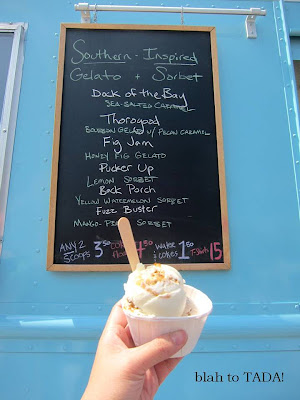 Southern - Inspired
Gelato + Sorbet
Dock of the Bay
SEA-SALTED CARAMEL
Thorogood
BOURBON GELATO w/ PECAN CARAMEL
Fig Jam
HONEY FIG GELATO
Pucker Up
LEMON SORBET
Back Porch
YELLOW WATERMELON SORBET
Fuzz Buster
SORBET
ANY 2 SCOOPS 3.50 1.50 1.50 T-Shirts 15
blah to TADA!